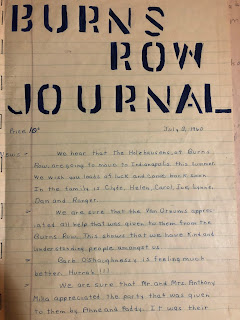 BURNS
ROW
JOURNAL
Price 10¢ July 2, 1960
News: We hear that The Holebournes, of Burns
Row, are going to move to Indianapolis this summer.
We wish you loads of luck and come back soon.
In the family is Clyde, Helen, Carol, Jue, Lynne,
Don and Ranger.
We are sure that the Van Ornams appre-
iated all help that was given to them from the
Burns Row. This shows that we have Kind and
understanding people amongst us.
Garb O'Shaughnessy is feeling much
better. Hurrah!!!
We are sure that Mr. and Mrs. Anthony
Milla appreciated the party that was given
to them by Anne and Paddy. It was their